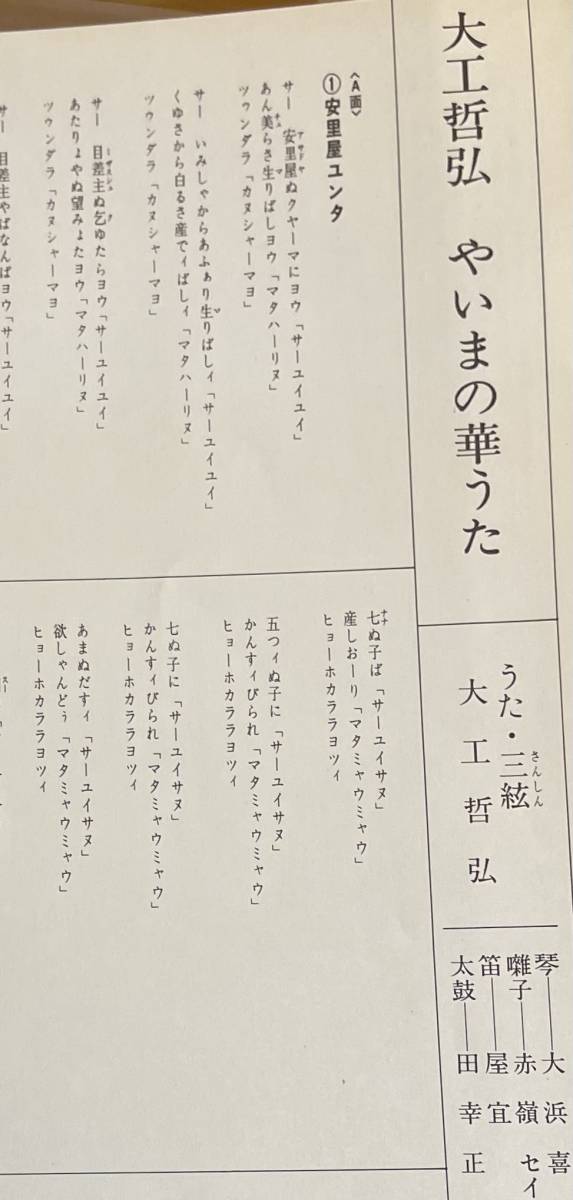 大工哲弘 やいまの華うた
うた・三絃
さんしん
大工哲弘
琴――大浜 喜
囃子――赤嶺 セイ
笛――屋宜
太鼓――田幸 正
〈A面〉
①安里屋ユンタ
サー 安里屋ぬクヤーマにヨウ「サーユイユイ」
あん美らさ生りばしヨウ「マタハーリヌ」
ツゥンダラ「カヌシャーマヨ」
サー いみしゃからあふぁり生りばしィ「サーユイユイ」
くゆさから白るさ産でィばしィ「マタハーリヌ」
ツゥンダラ「カヌシャーマヨ」
サー 目差主ぬ乞ゆたらヨウ「サーユイユイ」
あたりょやぬ望みょたヨウ「マタハーリヌ」
ツゥンダラ「カヌシャーマヨ」
サー 目差主やばなんばヨウ「サーユイユイ」
七ぬ子ば「サーユイサヌ」
産しおーり「マタミャウミャウ」
ヒョーホカララヨツィ
五つィぬ子に「サーユイサヌ」
かんすィびられ「マタミャウミャウ」
ヒョーホカララヨツィ
七ぬ子に「サーユイサヌ」
かんすィびられ「マタミャウミャウ」
ヒョーホカララヨツィ
あまぬだすィ「サーユイサヌ」
欲しゃんどぅ「マタミャウミャウ」
ヒョーホカララヨツィ